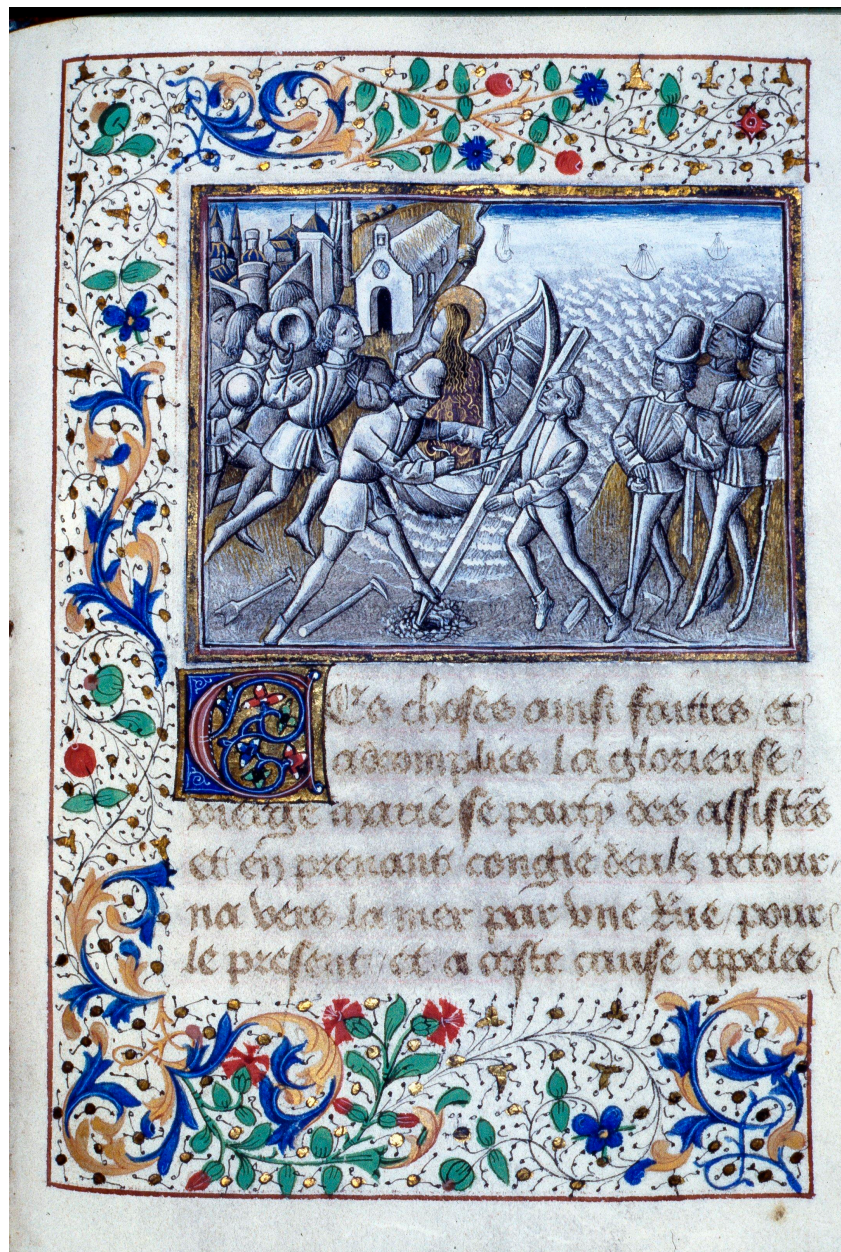 Ces choses ainsi faittes et
accomplies la glorieuse
vierge marie se party des assistẽs
et en prenant congie deulz retour/
na vers la mer par vne Rue/pour
le present/et a ceste cause appelee